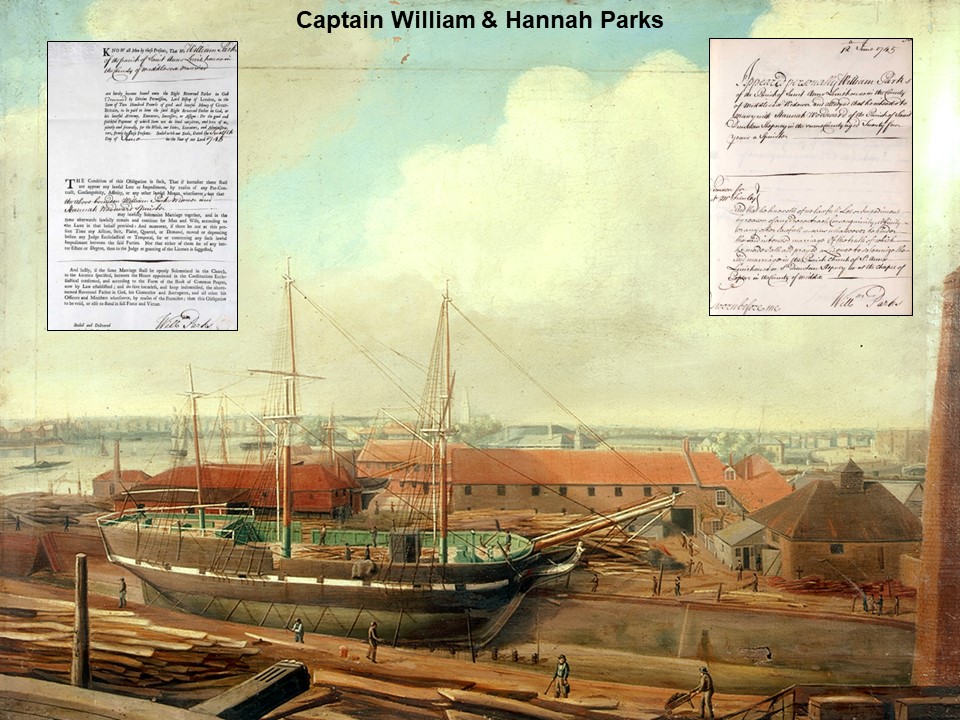 Captain William & Hannah Parks
KNOW all Men by these Presents, That We William Parks
of the Parish of Saint Anne Limehouse in
the County of Middlesex Mariner
are hereby become bound unto the Right Reverend Father in God
by Divine Permission, Lord Bishop of London, in the
Sum of Two Hundred Pounds of good and lawful Money of Great-
Britain, to be paid to him the said Right Reverend Father in God, or
his lawful Attorney, Executors, Successors, or Assigns: For the good and
faithful Payment of which Sum we do bind ourselves, and
jointly and severally, for the Whole, our Heirs, Executors, and Administrators,
firmly by these Presents. Sealed with our Seals, Dated the
Day of June in the Year of our Lord 1745
THE Condition of this Obligation is such, That if hereafter there shall
not appear any lawful Let or Impediment, by reason of any Pre-Contract,
Consanguinity, Affinity, or any other lawful Means whatsoever, but that
the above bounden William Parks Widower and
Hannah Woodward Spinster
may lawfully Solemnize Marriage together, and in the
same afterwards lawfully remain and continue for Man and Wife, according to
the Laws in that behalf provided: And moreover, if there be not at this present
Time any Action, Suit, Plaint, Quarrel, or Demand, moved or depending
before any Judge Ecclesiastical or Temporal, for or concerning any such lawful
Impediment between the said Parties: Nor that either of them be of any better
Estate or Degree, than to the Judge at granting of the Licence is suggested,
And lastly, if the same Marriage shall be openly Solemnized in the Church,
in the Licence specified, between the Hours appointed in the Constitutions Ecclesiastical
confirmed, and according to the Form of the Book of Common Prayer,
now by Law established; and do save harmless, and keep indemnified, the above-
mentioned Reverend Father in God, his Chancellor and Surrogates, and all other his
Officers and Ministers whatsoever, by reason of the Premises; then this Obligation
to be void, or else to stand in full Force and Virtue.
Sealed and Delivered
Willm Parks
12 June 1745
Appeared personally William Parks
of the Parish of Saint Anne Limehouse in the County
of Middlesex Widower and alledged that he intendeth to
marry with Hannah Woodward of the Parish of Saint
Dunstan Stepney in the same County aged Twenty four
years a Spinster
and that he knoweth of no lawful Let or Impediment
by reason of any Precontract Consanguinity Affinity
or any other lawful means whatsoever to hinder
the said intended marriage Of the truth of which
he made Oath and prayed Licence to solemnize the
said marriage in the Parish Church of St. Anne
Limehouse or St Dunstan Stepney or at the Chapel of
in the County of
Sworn before me
Willm Parks